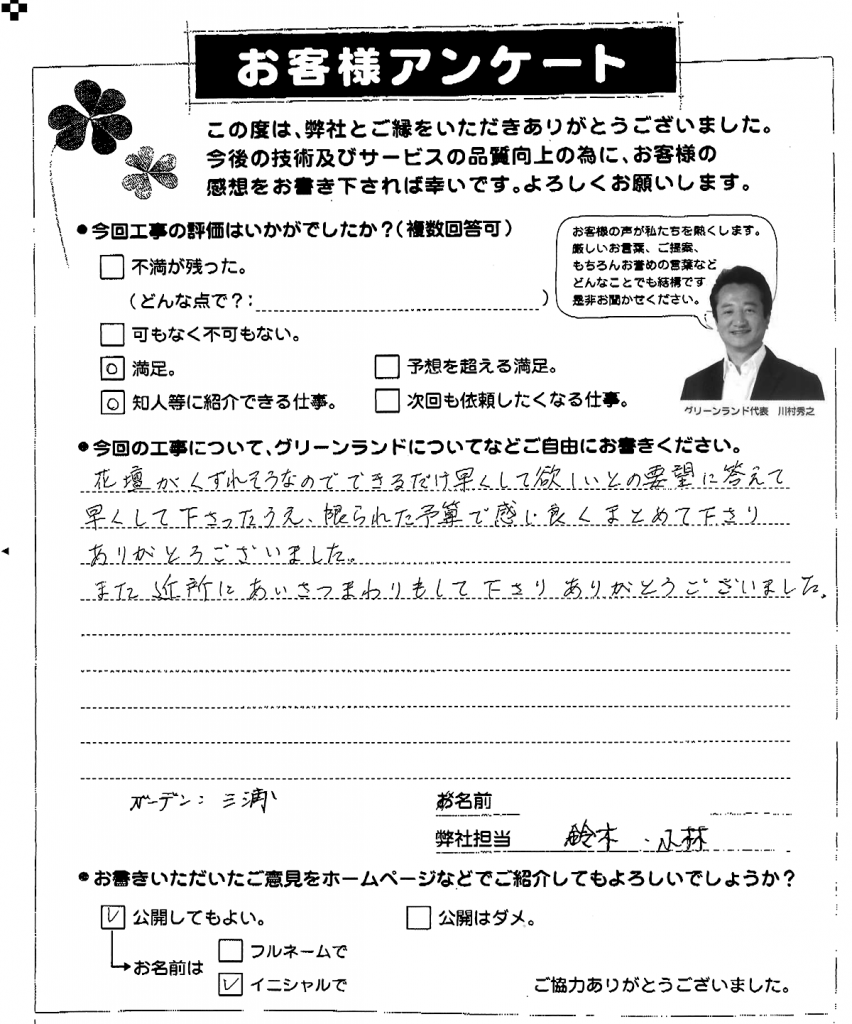 お客様アンケート
この度は、弊社とご縁をいただきありがとうございました。
今後の技術及びサービスの品質向上の為に、お客様の
感想をお書き下されば幸いです。よろしくお願いします。
●今回工事の評価はいかがでしたか?(複数回答可)
お客様の声が私たちを熱くします。
厳しいお言葉、ご提案、
もちろんお誉めの言葉など
どんなことでも結構です
是非お聞かせください。
不満が残った。
(どんな点で?: )
可もなく不可もない。
○ 満足。 予想を超える満足。
○ 知人等に紹介できる仕事。 次回も依頼したくなる仕事。
グリーンランド代表 川村秀之
●今回の工事について、グリーンランドについてなどご自由にお書きください。
花壇がくずれそうなのでできるだけ早くして欲しいとの要望に答えて
早くして下さったうえ、限られた予算で感じ良くまとめて下さり
ありがとうございました。
また近所にあいさつまわりもして下さりありがとうございました。
ガーデン:三浦 お名前
弊社担当 鈴木・小林
●お書きいただいたご意見をホームページなどでご紹介してもよろしいでしょうか?
公開してもよい。 公開はダメ。
お名前は フルネームで
イニシャルで ご協力ありがとうございました。